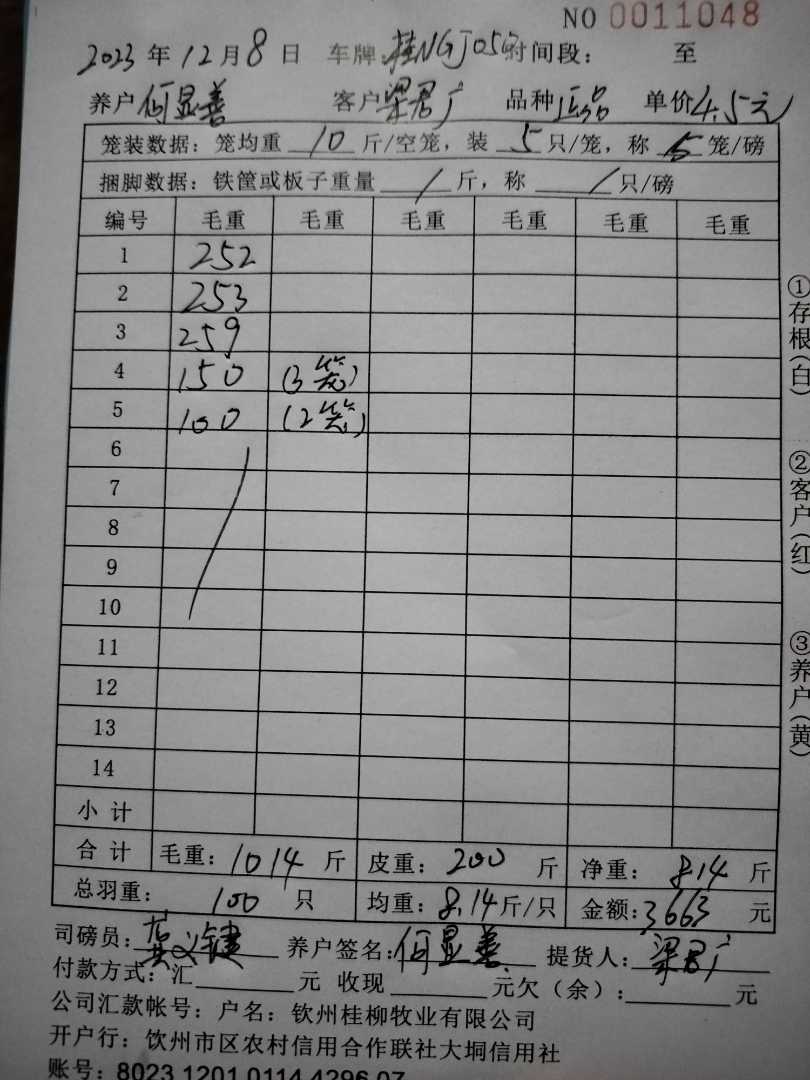 NO 0011048
2023 年 12 月 8 日 车牌: 桂NGJ05 时间段: 至
养户 何显善 客户 梁君广 品种 正品 单价 4.5元
笼装数据: 笼均重 10 斤/空笼, 装 5 只/笼, 称 5 笼/磅
捆脚数据: 铁筐或板子重量 / 斤, 称 / 只/磅
编号 毛重 毛重 毛重 毛重 毛重 毛重
1 252
2 253
3 259
4 150 (3笼)
5 100 (2笼)
6
7
8
9
10
11
12
13
14
小 计
合 计 毛重: 1014 斤 皮重: 200 斤 净重: 814 斤
总羽重: 100 只 均重: 8.14 斤/只 金额: 3663 元
司磅员: 义键 养户签名: 何显善 提货人: 梁君广
付款方式: 汇 元 收现 元欠(余): 元
公司汇款帐号: 户名: 钦州桂柳牧业有限公司
开户行: 钦州市区农村信用合作联社大垌信用社
账号: 8023 1201 0114 4296 07
①存根(白)
②客户(红)
③养户(黄)